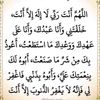 اللَّهُمَّ أَنْتَ رَبِّي لَا إِلَهَ إِلَّا أَنْتَ،
خَلَقْتَنِي وَأَنَا عَبْدُكَ، وَأَنَا عَلَى
عَهْدِكَ وَوَعْدِكَ مَا اسْتَطَعْتُ، أَعُوذُ
بِكَ مِنْ شَرِّ مَا صَنَعْتُ، أَبُوءُ لَكَ
بِنِعْمَتِكَ عَلَيَّ، وَأَبُوءُ بِذَنْبِي، فَاغْفِرْ
لِي فَإِنَّهُ لَا يَغْفِرُ الذُّنُوبَ إِلَّا أَنْتَ